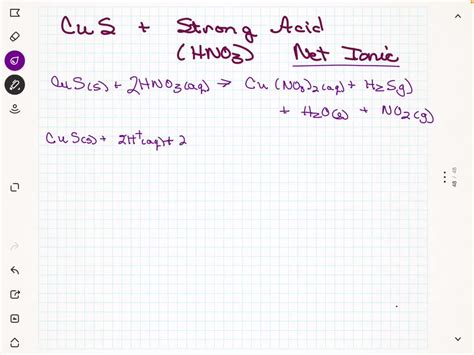 CuS + Strong Acid
(HNO3) Net Ionic
CuS(s) + 2HNO3(aq) → Cu(NO3)2(aq) + H2S(g)
+ H2O(l) + NO2(g)
CuS(s) + 2H+(aq) + 2